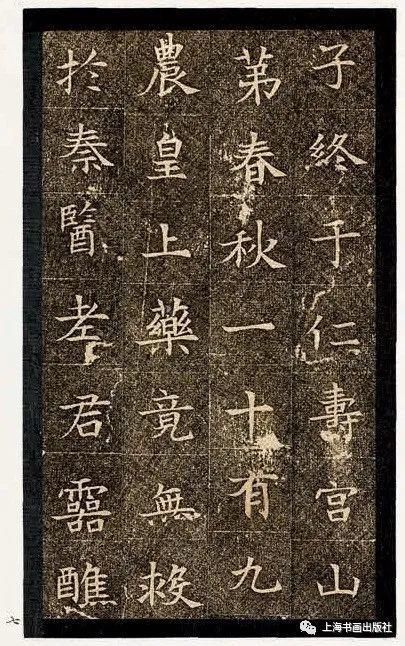 子終于仁壽宮山
苐春秋一十有九
農皇上藥竟無救
扵秦醫老君靈醮
七
上海书画出版社